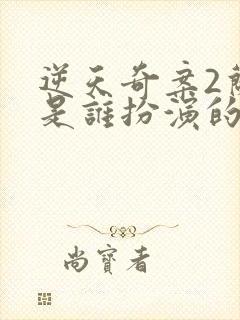 逆天奇案2簡
是誰扮演的
尚寶者